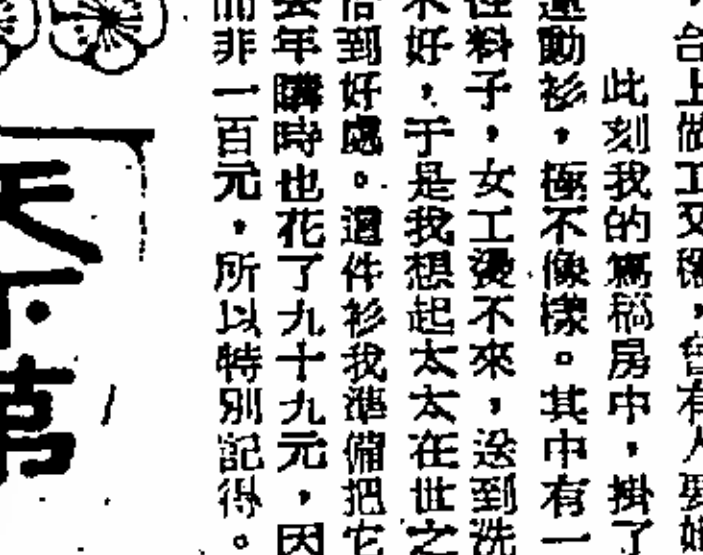 ，台上做工又穩，曾有人要她
此刻我的寫稿房中，掛了
運動衫，極不像樣。其中有一
性料子，女工燙不來，送到洗
不好，于是我想起太太在世之
恰到好處。這件衫我準備把它
去年購時也花了九十九元，因
而非一百元，所以特別記得。
天下第